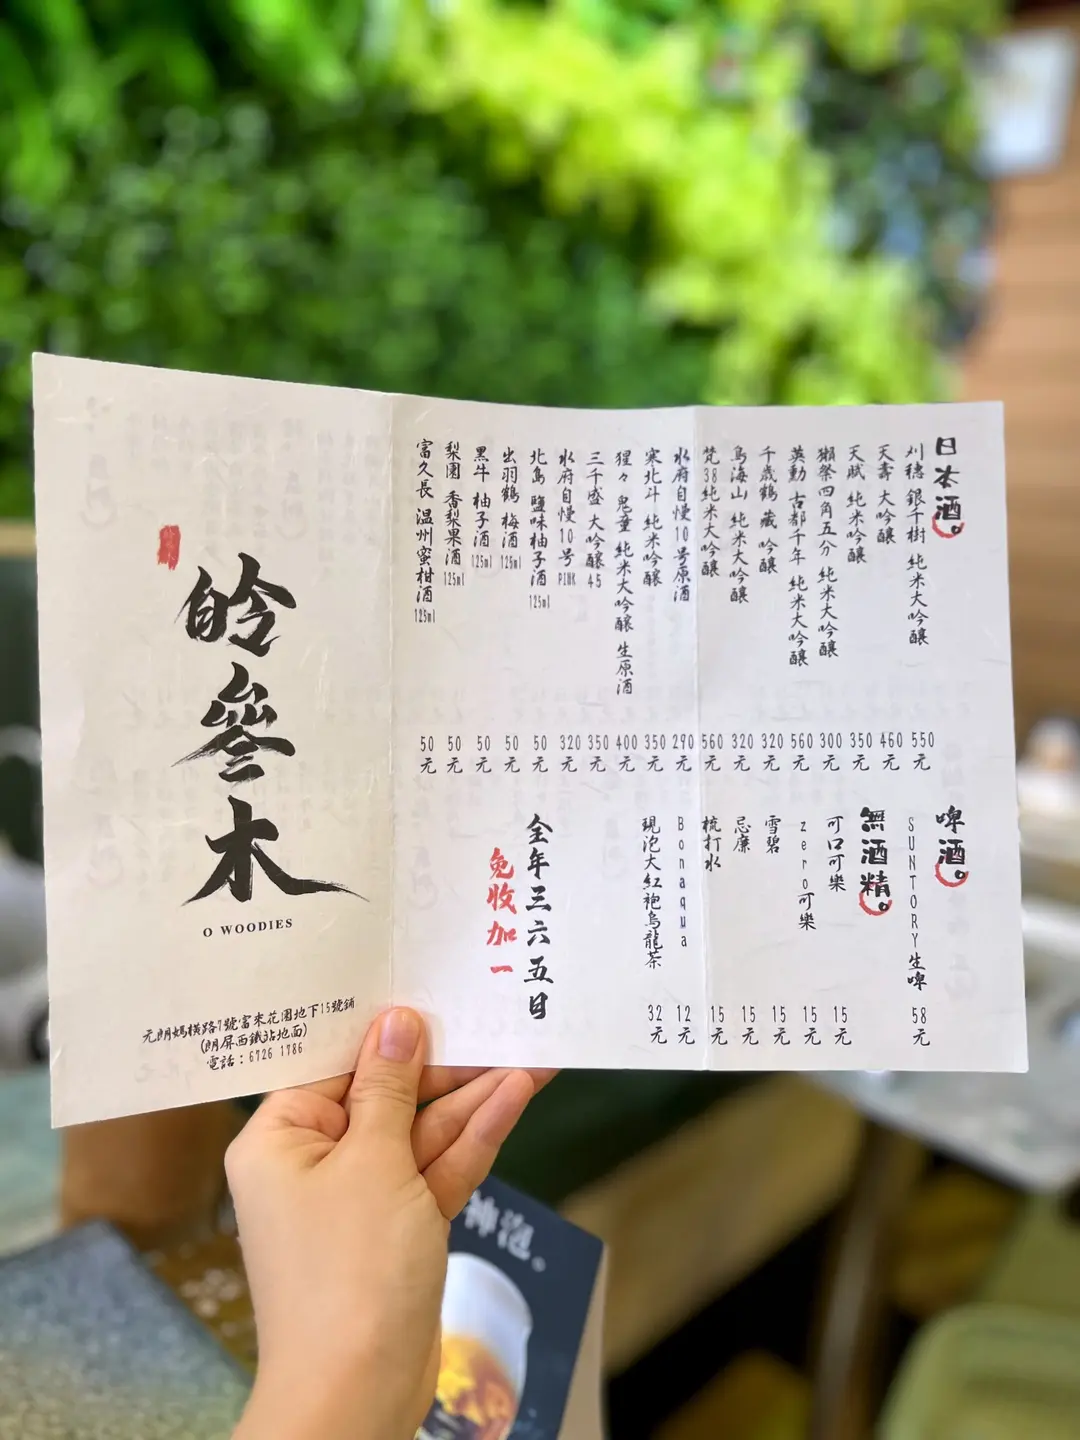 日本酒。
刈穗 銀千樹 純米大吟釀 550元
天壽 大吟釀 460元
天賦 純米吟釀 350元
獺祭四角五分 純米大吟釀 300元
英勳 古都千年 純米大吟釀 560元
千歲鶴 藏 吟釀 320元
鳥海山 純米大吟釀 320元
梵38純米大吟釀 560元
水府自慢10号原酒 290元
寒北斗 純米吟釀 350元
猩々 鬼童 純米大吟釀 生原酒 400元
三千盛 大吟釀45 350元
水府自慢10号PINK 320元
北島 鹽味柚子酒125ml 50元
出羽鶴 梅酒125ml 50元
黑牛 柚子酒125ml 50元
梨園 香梨果酒125ml 50元
富久長 温州蜜柑酒125ml 50元
啤酒。
SUNTORY生啤 58元
無酒精。
可口可樂 15元
zero可樂 15元
雪碧 15元
忌廉 15元
梳打水 15元
Bonaqua 12元
現泡大紅袍烏龍茶 32元
全年三六五日
免收加一
皊參木
O WOODIES
元朗媽橫路7號富來花園地下15號鋪
(朗屏西鐵站地面)
電話：6726 1786
神泡。